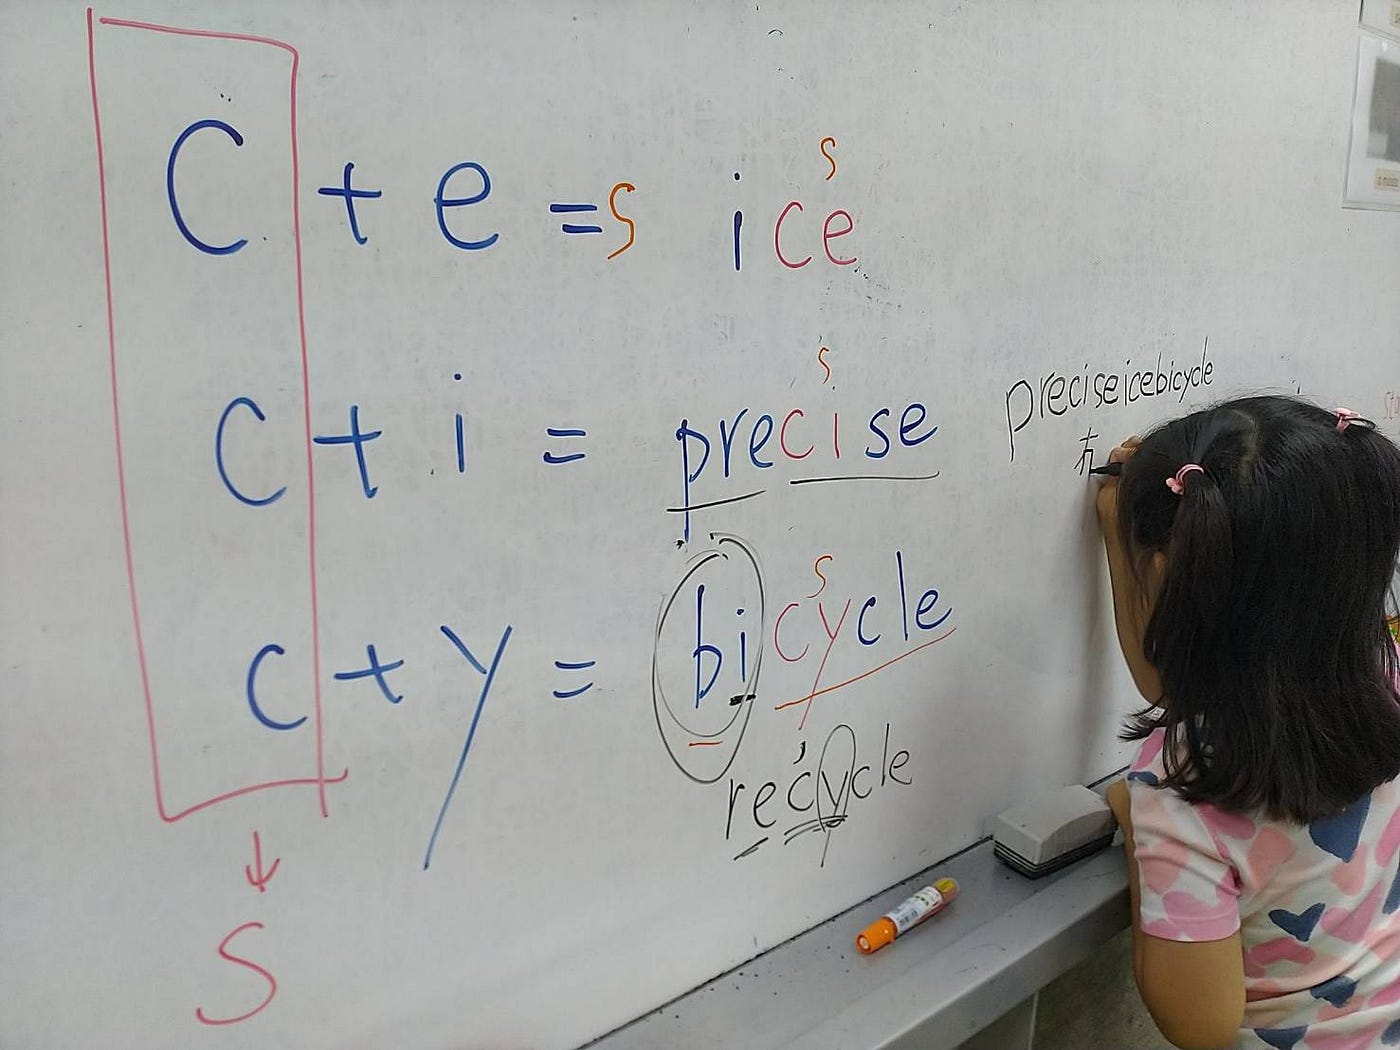 C + e = s ice
s
c + i = precise
s
c + y = bicycle
s
recycle
s
preciseicebicycle